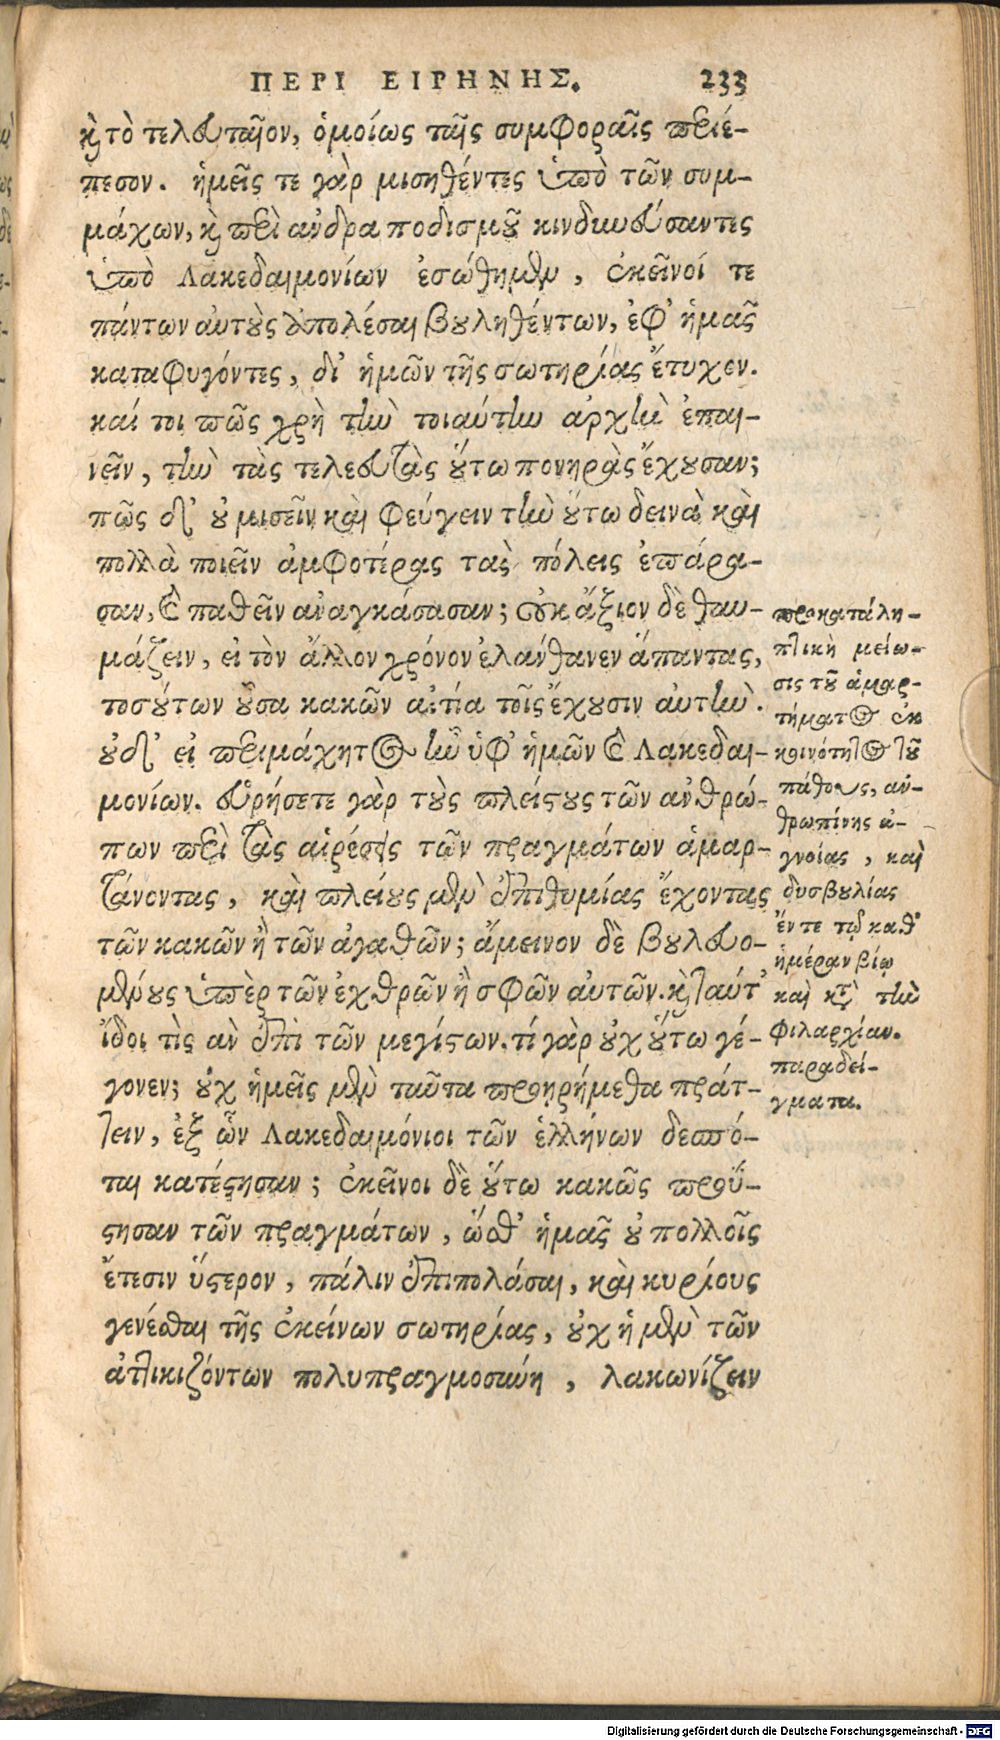 ΠΕΡΙ ΕΙΡΗΝΗΣ. 233
καὶ τὸ τελευταῖον, ὁμοίως ταῖς συμφοραῖς περιέ-
πεσον. ἡμεῖς τε γὰρ μισηθέντες ὑπὸ τῶν συμ-
μάχων, καὶ περὶ ἀνδραποδισμοῦ κινδυνεύσαντες
ὑπὸ Λακεδαιμονίων ἐσώθημεν, ἐκεῖνοί τε
πάντων αὐτοὺς ἀπολέσαι βουληθέντων, ἐφ' ἡμᾶς
καταφυγόντες, δι' ἡμῶν τῆς σωτηρίας ἔτυχον.
καί τοι πῶς χρὴ τὴν τοιαύτην ἀρχὴν ἐπαι-
νεῖν, τὴν τὰς τελευτὰς οὕτω πονηρὰς ἔχουσαν;
πῶς δ' οὐ μισεῖν καὶ φεύγειν τὴν οὕτω δεινὰ καὶ
πολλὰ ποιεῖν ἀμφοτέρας τὰς πόλεις ἐπάρα-
σαν, καὶ παθεῖν ἀναγκάσασαν; οὐκ ἄξιον δὲ θαυ-
μάζειν, εἰ τὸν ἄλλον χρόνον ἐλάνθανεν ἅπαντας,
τοσούτων οὖσα κακῶν αἰτία τοῖς ἔχουσιν αὐτήν.
οὐδ' εἰ περιμάχητος ἦν ὑφ' ἡμῶν καὶ Λακεδαι-
μονίων. εὑρήσετε γὰρ τοὺς πλείστους τῶν ἀνθρώ-
πων περὶ τὰς αἱρέσεις τῶν πραγμάτων ἁμαρ-
τάνοντας, καὶ πλείους μὲν ἐπιθυμίας ἔχοντας
τῶν κακῶν ἢ τῶν ἀγαθῶν; ἄμεινον δὲ βουλευο-
μένους ὑπὲρ τῶν ἐχθρῶν ἢ σφῶν αὐτῶν. καὶ ταῦτ'
ἴδοι τὶς ἂν ἐπὶ τῶν μεγίστων. τί γὰρ οὐχ οὕτω γέ-
γονεν; οὐχ ἡμεῖς μὲν ταῦτα προῃρήμεθα πράτ-
τειν, ἐξ ὧν Λακεδαιμόνιοι τῶν ἑλλήνων δεσπό-
ται κατέστησαν; ἐκεῖνοι δὲ οὕτω κακῶς προὔ-
στησαν τῶν πραγμάτων, ὥσθ' ἡμᾶς οὐ πολλοῖς
ἔτεσιν ὕστερον, πάλιν ἐπιπολάσαι, καὶ κυρίους
γενέσθαι τῆς ἐκείνων σωτηρίας, οὐχ ἡ μὲν τῶν
ἀττικιζόντων πολυπραγμοσύνη, λακωνίζειν
προκατάλη-
πτικὴ μείω-
σις τοῦ ἁμαρ-
τήματος ἐκ
κοινότητος τοῦ
πάθους, ἀν-
θρωπίνης ἀ-
γνοίας, καὶ
δυσβουλίας
ἔν τε τῷ καθ'
ἡμέραν βίῳ
καὶ κατὰ τὴν
φιλαρχίαν.
παραδεί-
γματα.
Digitalisierung gefördert durch die Deutsche Forschungsgemeinschaft - DFG